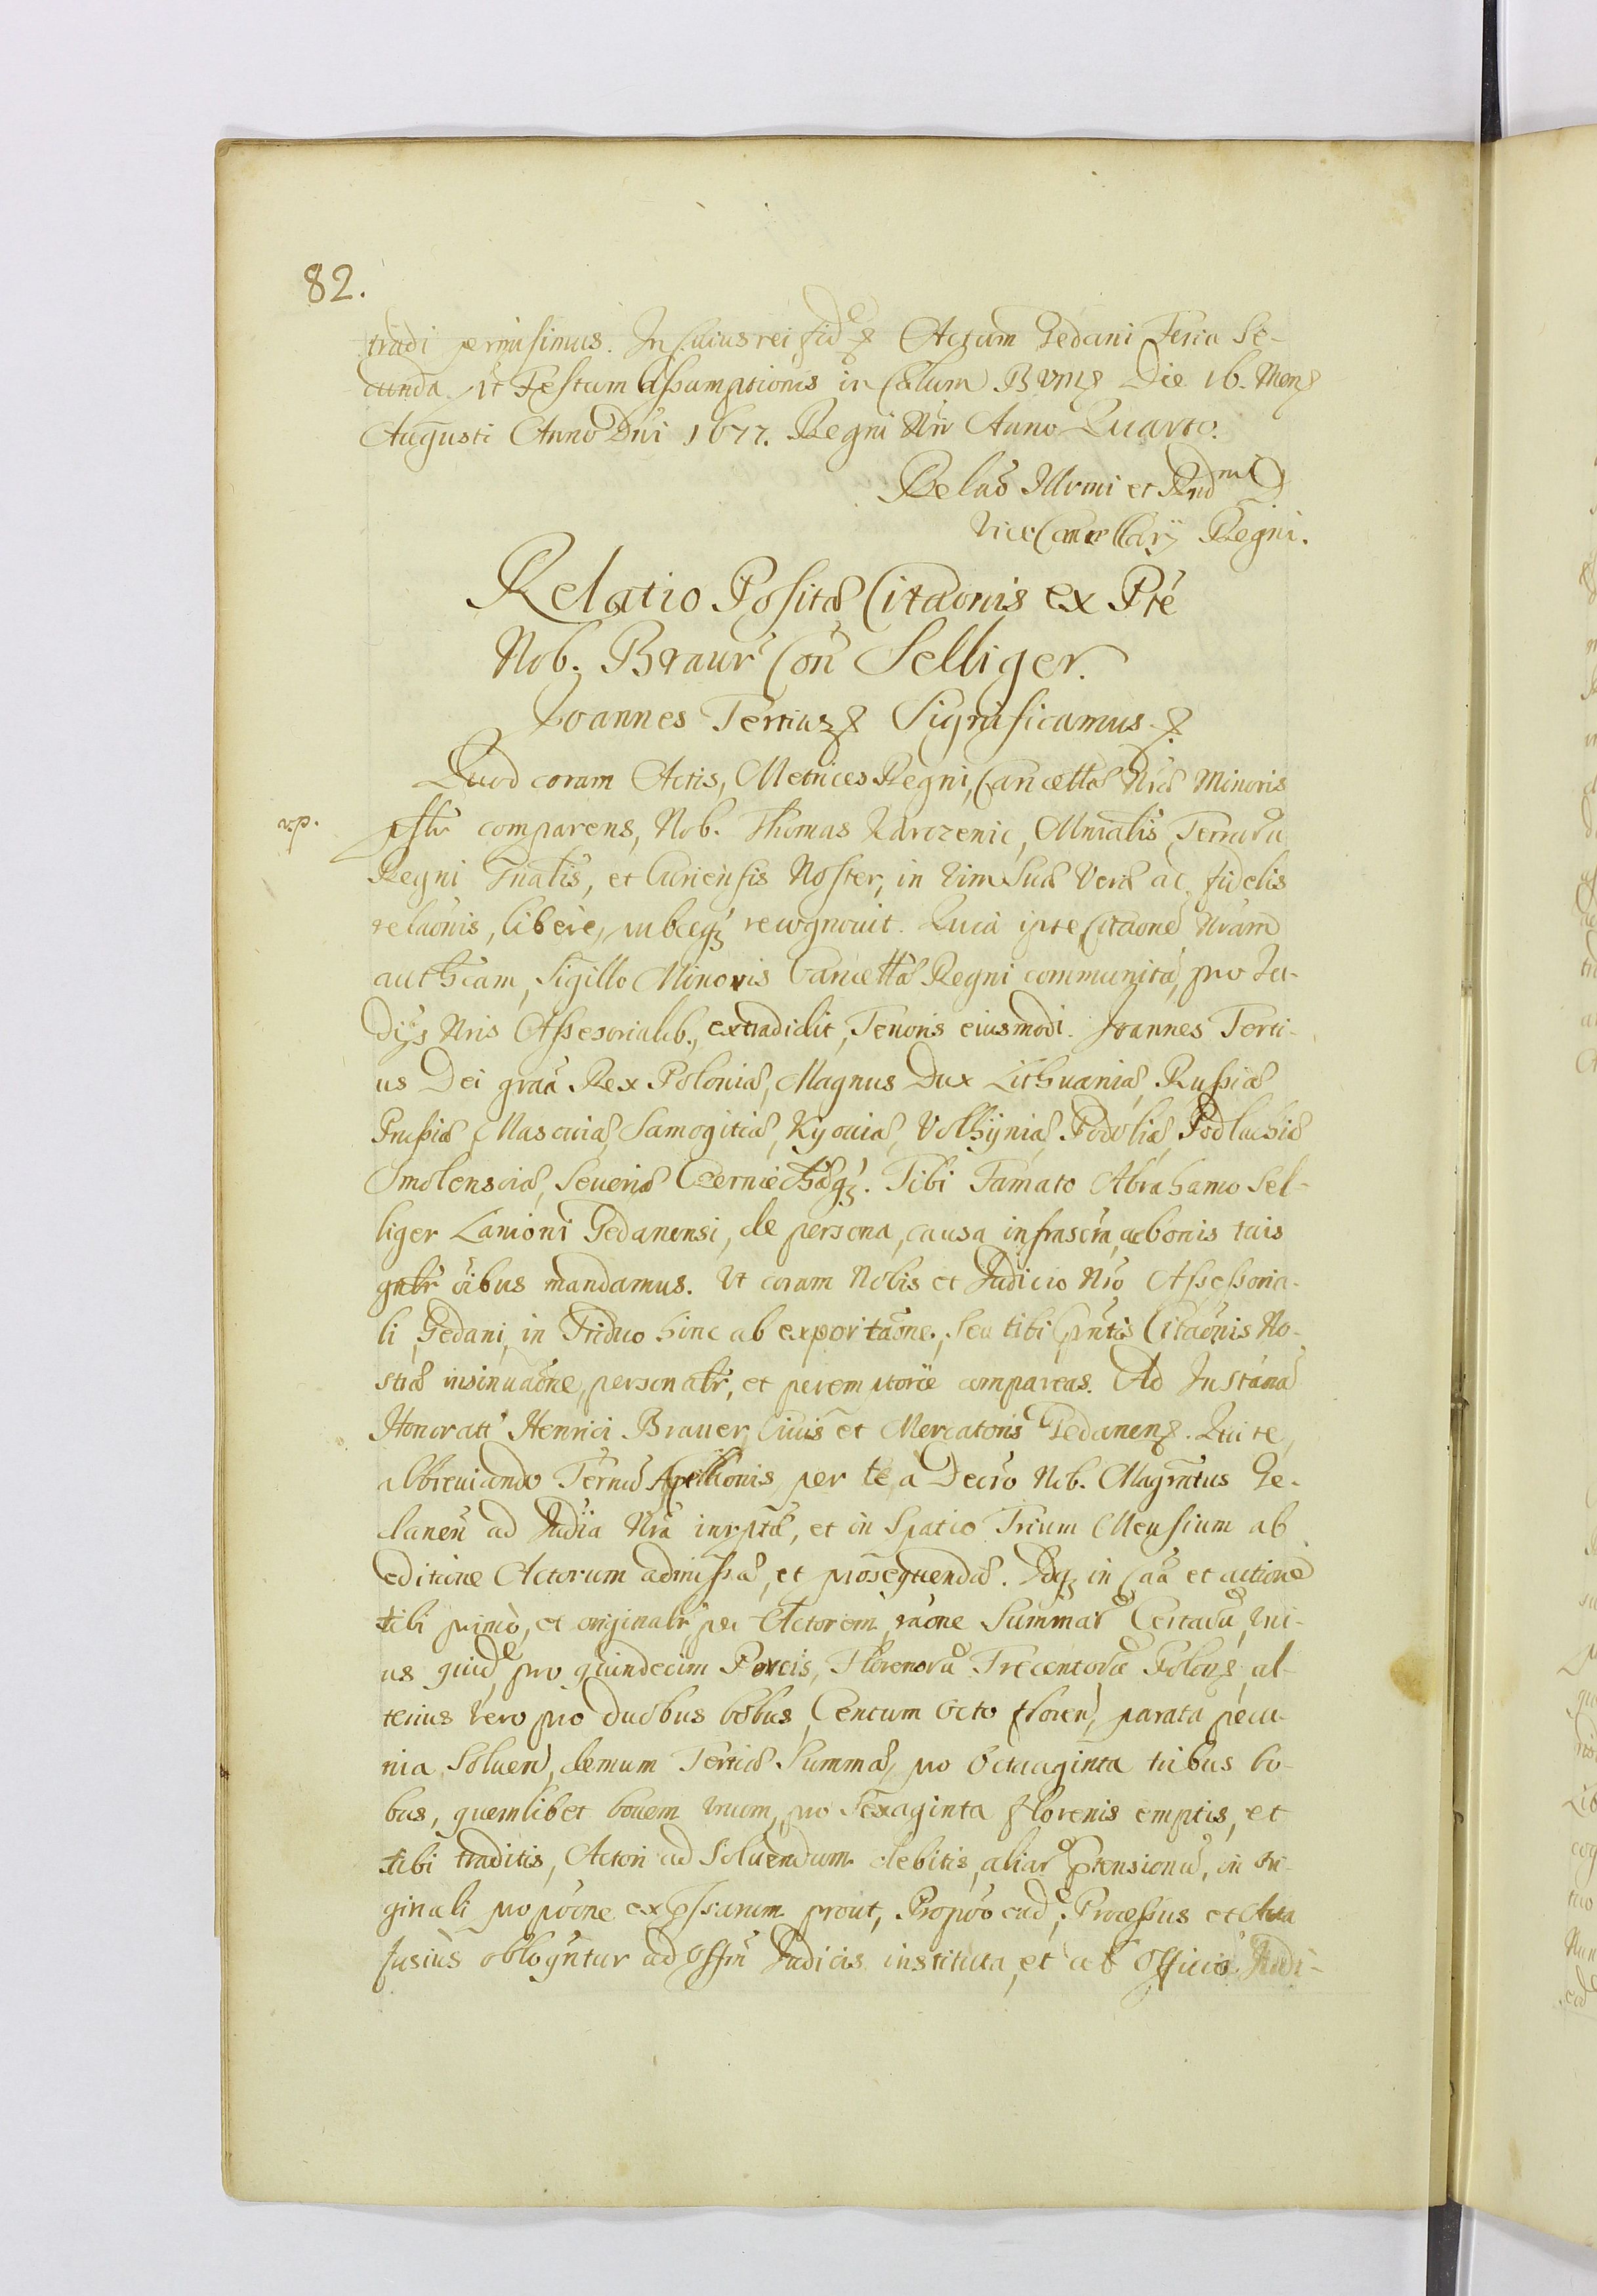 82.
tradi permisimus. In Cuius rei fidē Actum Gedani Feria Se-
cunda pt Festum Assumptionis in Cælum B VM Die 16. Mens
Augusti Anno Dni 1677. Regni Nri Anno Quarto.
Relaõ Illrmi et Rndmi
Vice Cancellarij Regni.
Relatio Positæ Citaõnis ex Pte
Nob. Braur Con Selliger.
Joannes Tertius Significamus
Quod coram Actis, Metrices Regni, Cancellæ Nræ Minoris
v.p.
psltr comparens, Nob. Thomas Karczenic, Mnialis Terrarũ
Regni Gnalis, et Curiensis Noster, in Vim Suæ Veræ ac fidelis
relaõnis, libere, publceq; recognovit. Quia ipse Citaõnē Nram
authcam, Sigillo Minoris Cancellæ Regni communitā, pro Ju-
dijs Nris Assessorialib., extradidit, Tenoris eiusmodi. Joannes Terti-
us Dei graa Rex Poloniæ, Magnus Dux Lithuaniæ, Russiæ
Prussiæ, Masoviæ, Samogitiæ, Kyoviæ, Volhyniæ, Podoliæ, Podlachiæ
Smolensciæ, Severiæ Czerniechæq;. Tibi Famato Abrahamo Sel-
liger Lanioni Gedanensi, de persona, causa infrascra, ac bonis tuis
gnlr oibus mandamus. Vt coram Nobis et Judicio Nro Assessoria-
li, Gedani, in Triduo hinc ab exportaõne, seu tibi pntis Citaõnis No-
stræ insinuaõne, personalr, et peremptorie compareas. Ad Instanã
Honoratt Henrici Brauer, Civis et Mercatoris Gedanens. Qui te,
abbreviando Termũ Apellõnis, per te, a Decro Nob. Magratus Ge-
danen ad Judia Nra inrptæ, et in Spatio Trium Mensium ab
editione Actorum admissæ, et prosequendæ. Idq; in Caa et actione
tibi primo, et originalr, per Actorem, raõne Summar Certarũ, uni-
us quidē, pro quindecim Porcis, Florenorũ Trecentorũ Polons, al-
terius vero pro duobus bobus, Centum Octo floren, parata pecu-
nia, Soluen, demum Tertiæ Summæ, pro Octuaginta tribus bo-
bus, quemlibet bovem unum, pro Sexaginta florenis emptis, et
tibi traditis, Actori ad Solvendum debitis, aliarũ prensionũ, in ori-
ginali propõne expssarum prout, Propõo eadē, Processus et Acta
fusius obloqntur ad Offm Judicis instituta, et ab Officio Judi-